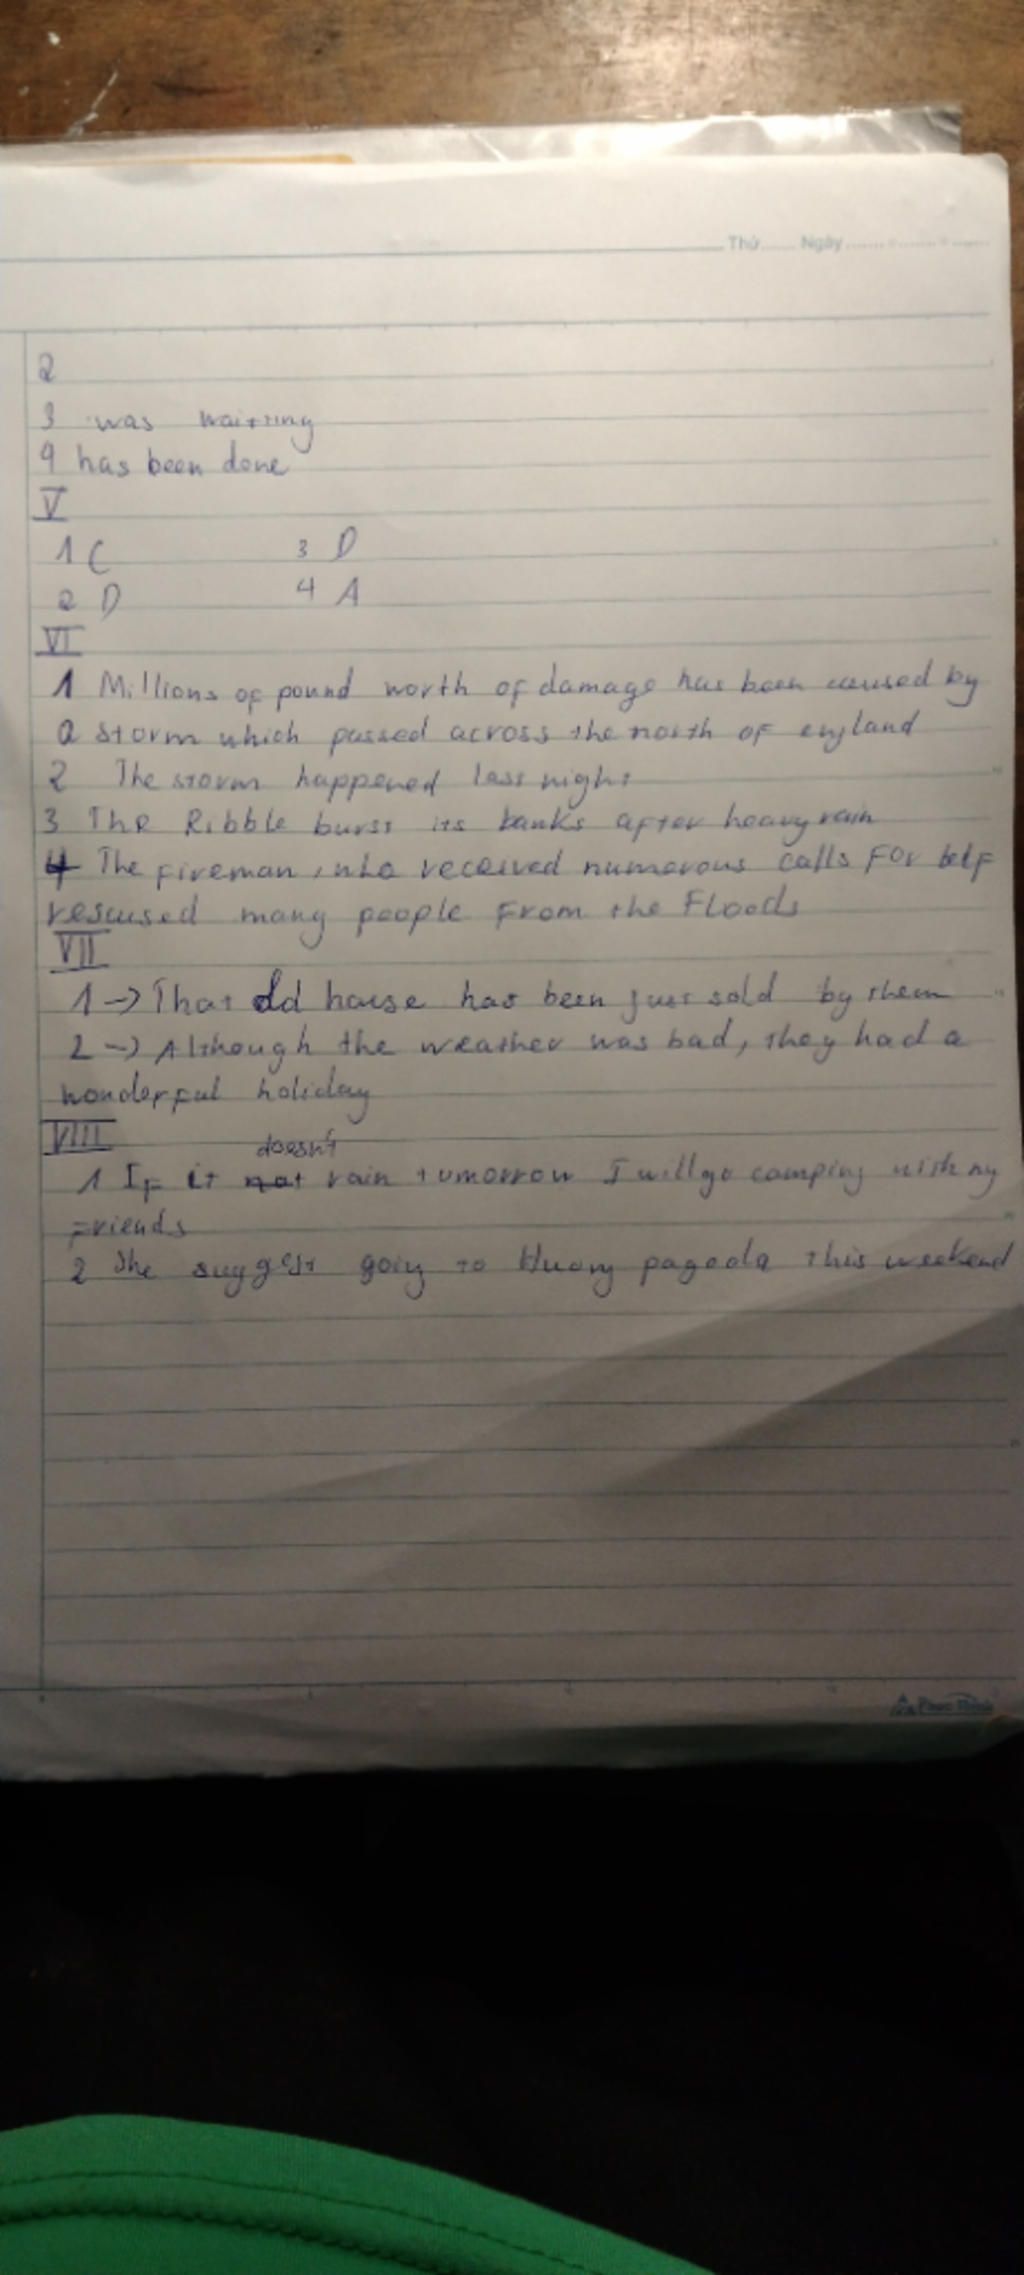 Thứ...... Ngày.......
2
3 was waitting
4 has been done
V
1 C 3 D
2 D 4 A
VI
1 Millions of pound worth of damage has been caused by
a storm which passed across the north of england
2 The storm happened last night
3 The Ribble burst its banks after heavy rain
4 The fireman, who received numerous calls For help
rescused many people From the Floods
VII
1 -> That old house has been just sold by them
2 -> Although the weather was bad, they had a
wonderful holiday
VIII
doesn't
1 If it not rain tumorrow I will go camping with my
Friends
2 She suggest going to Huong pagoda this weekend